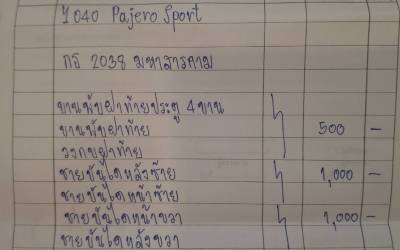 1040 Pajero Sport
กธ 2038 มหาสารคาม
บานพับฝาท้ายประตู 4 บาน
บานพับฝาท้าย 500 -
วงกบฝาท้าย
ชายบันไดหลังซ้าย 1,000 -
ชายบันไดหน้าซ้าย
ชายบันไดหน้าขวา 1,000 -
ชายบันไดหลังขวา